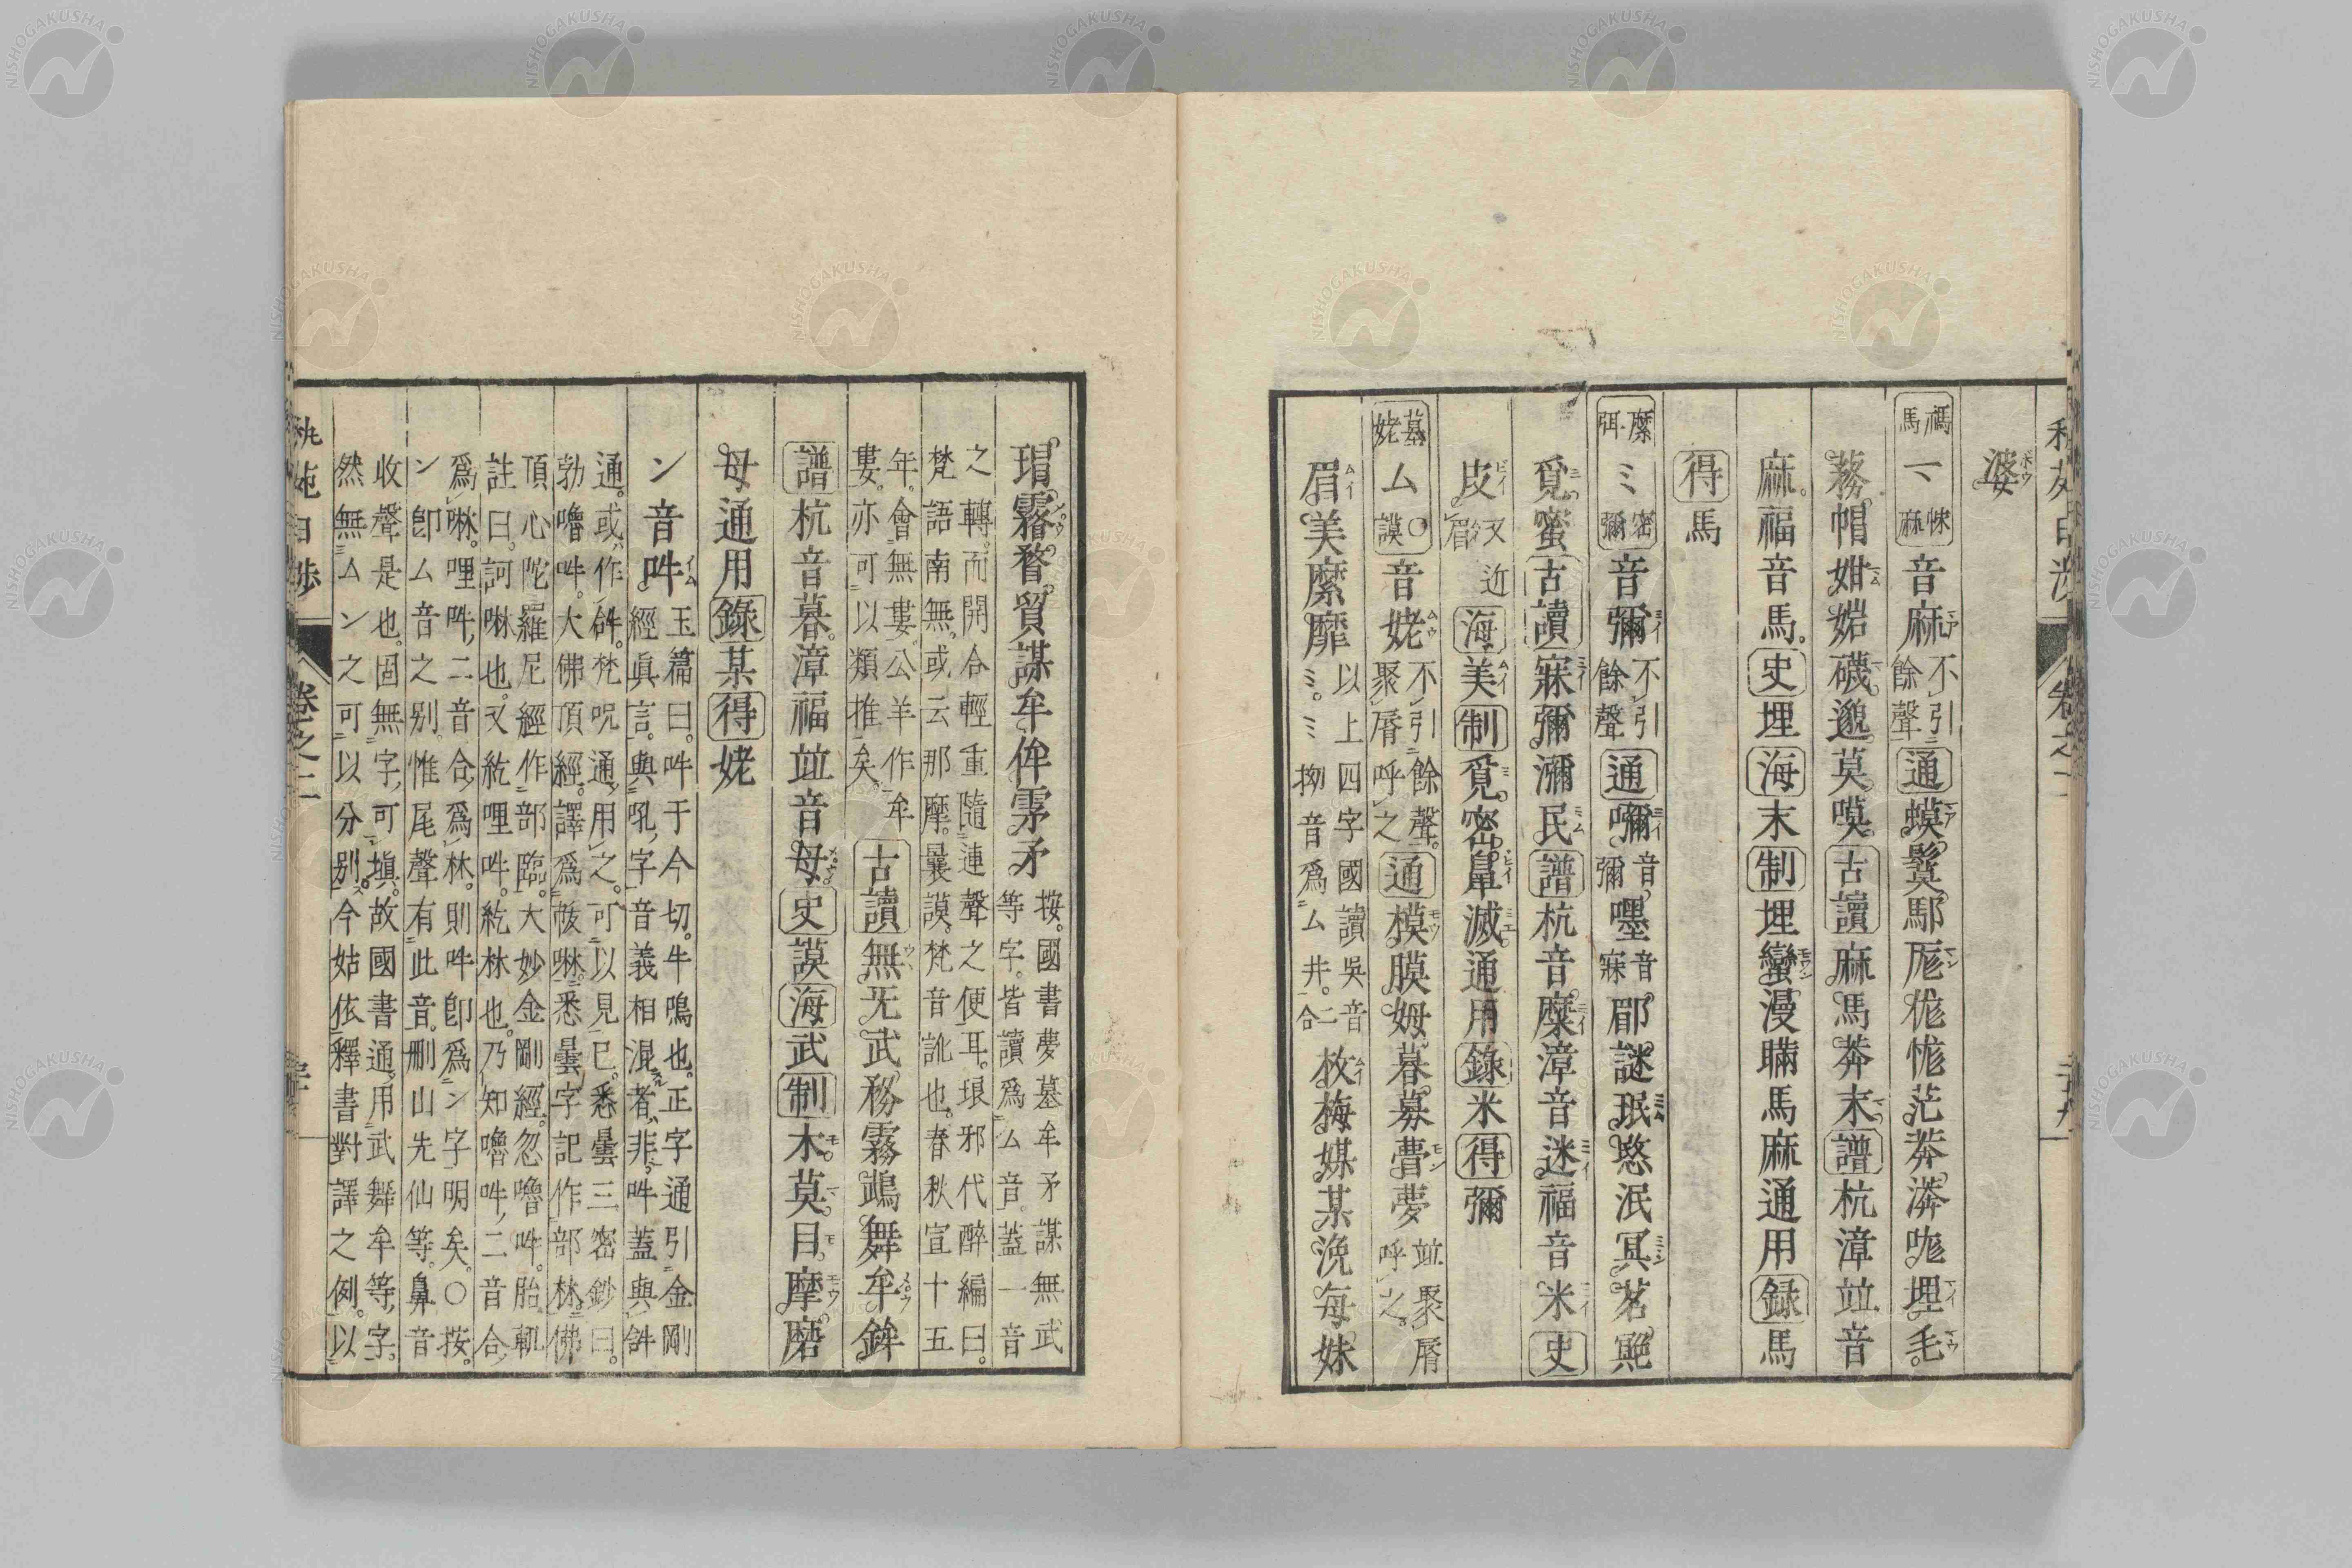 婆
禡馬
マ
音麻不引餘聲通蟆鬘馬厖狵㤶茫莽漭咙埋毛
務帽姏媌礣邈莫嗼古讀麻馬莽末譜杭漳竝音
麻福音馬史埋海末制埋蠻漫瞞馬麻通用録馬
得馬
縻弭
ミ密彌
音彌不引餘聲通㜷音彌嚜音寐郿謎珉愍泯冥茗
覓蜜古讀寐彌瀰民譜杭音糜漳音迷福音米史
皮又近眉海美制覓密鼻滅通用錄米得彌
墓姥
ム○謨
音姥不引餘聲聚脣呼之通模膜姆暮募瞢夢竝聚脣呼之
眉美縻靡以上四字國讀吳音ミミ拗音爲ム井二合枚梅媒某浼每妹
瑁霧瞀貿謀牟侔雺矛按國書夢墓牟矛謀無武
等字皆讀爲ム音蓋一音
之轉而開合輕重隨連聲之便耳琅邪代醉編曰
梵語南無或云那摩曩謨梵音訛也春秋宣十五
年會無婁公羊作牟
婁亦可以類推矣
古讀無无武務霧鵡舞牟鉾
譜杭音暮漳福竝音母史謨海武制木莫目摩磨
母通用錄某得姥
ン音吽玉篇曰吽于今切牛鳴也正字通引金剛
經眞言與吼字音義相混者非吽蓋與𤙖
通或作𤙖梵呪通用之可以見已悉曇三密鈔曰
勃嚕吽大佛頂經譯爲㧊啉悉曇字記作部林佛
頂心陀羅尼經作部臨大妙金剛經忽嚕吽胎軌
註曰訶啉也又紇哩吽紇林也乃知嚕吽二音合
爲啉哩吽二音合爲林則吽卽爲ン字明矣○按
ン卽ム音之別惟尾聲有此音刪山先仙等鼻音
收聲是也固無字可塡故國書通用武舞牟等字
然無ムン之可以分別今姑依釋書對譯之例以
卷之二
NISHOGAKUSHA